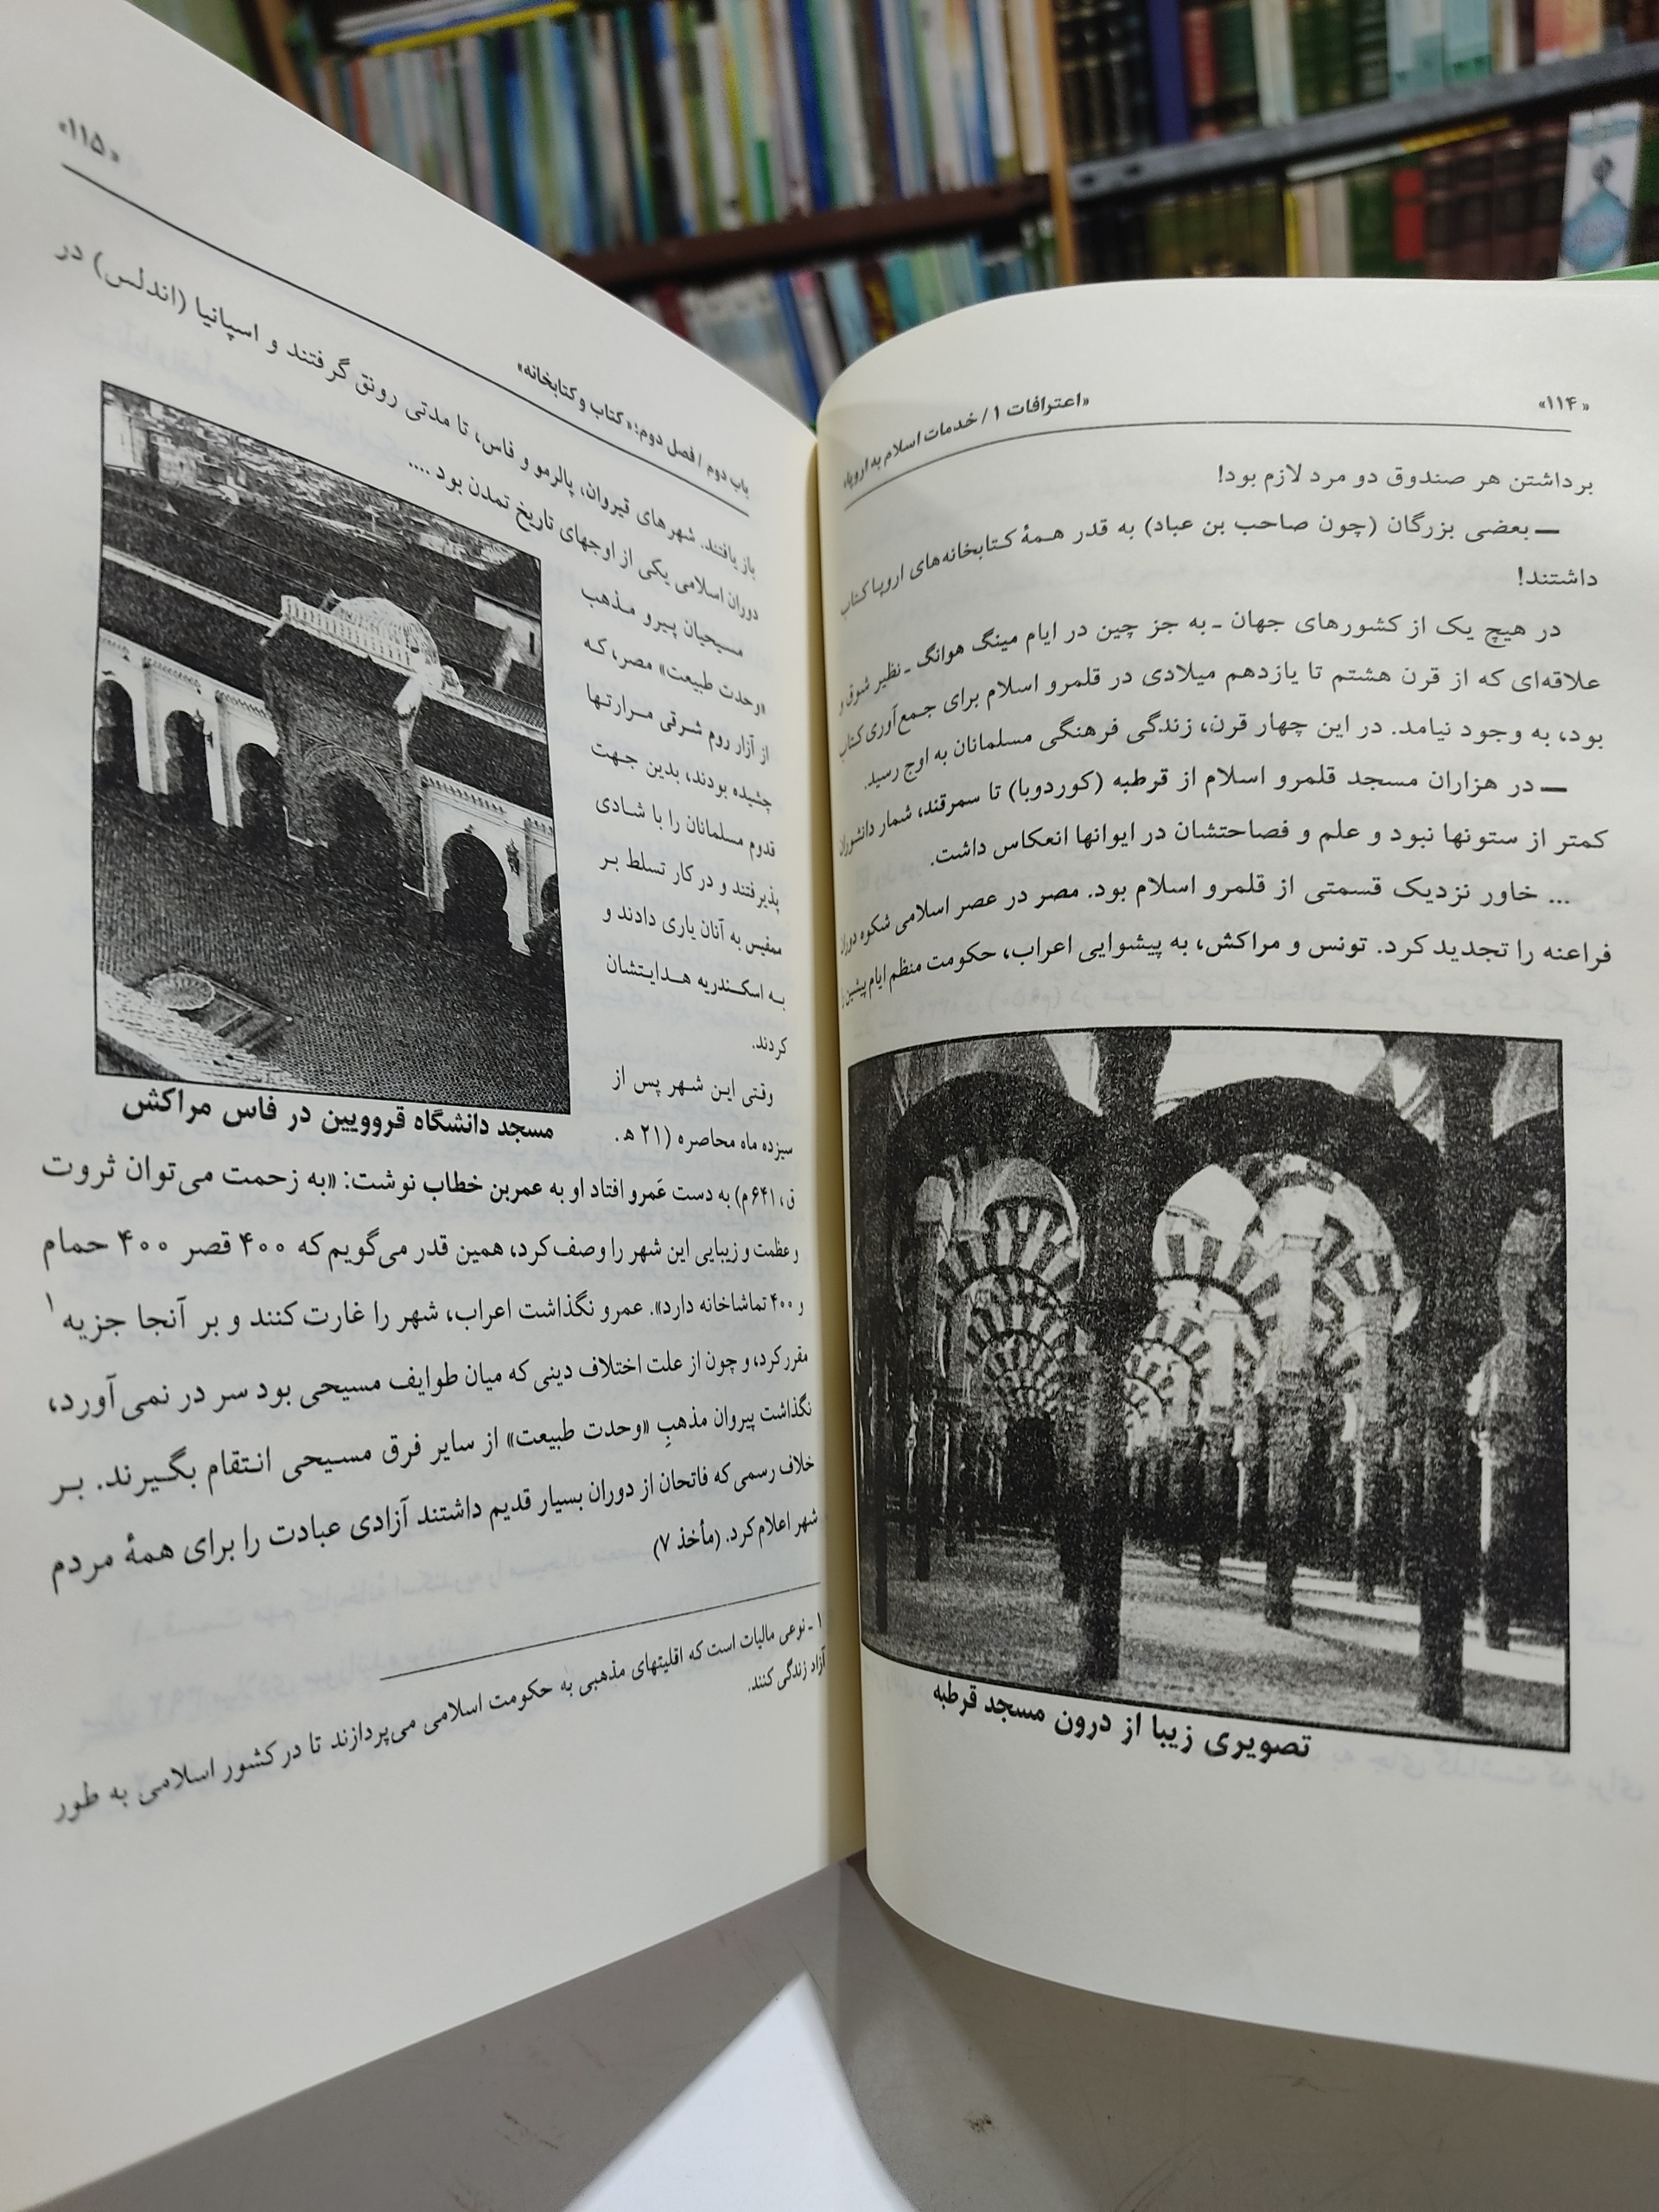 «۱۱۴»
«اعترافات ۱ / خدمات اسلام به اروپا»
برداشتن هر صندوق دو مرد لازم بود!
ـــ بعضی بزرگان (چون صاحب بن عباد) به قدر همهٔ کتابخانه‌های اروپا کتاب
داشتند!
در هیچ یک از کشورهای جهان ـ به جز چین در ایام مینگ هوانگ ـ نظیر شوق و
علاقه‌ای که از قرن هشتم تا یازدهم میلادی در قلمرو اسلام برای جمع‌آوری کتاب
بود، به وجود نیامد. در این چهار قرن، زندگی فرهنگی مسلمانان به اوج رسید.
ـــ در هزاران مسجد قلمرو اسلام از قرطبه (کوردوبا) تا سمرقند، شمار دانشوران
کمتر از ستونها نبود و علم و فصاحتشان در ایوانها انعکاس داشت.
... خاور نزدیک قسمتی از قلمرو اسلام بود. مصر در عصر اسلامی شکوه دوران
فراعنه را تجدید کرد. تونس و مراکش، به پیشوایی اعراب، حکومت منظم ایام پیشین را
تصویری زیبا از درون مسجد قرطبه
باب دوم / فصل دوم: «کتاب و کتابخانه»
«۱۱۵»
باز یافتند. شهرهای قیروان، پالرمو و فاس، تا مدتی رونق گرفتند و اسپانیا (اندلس) در
دوران اسلامی یکی از اوجهای تاریخ تمدن بود ....
مسیحیان پیرو مذهب
«وحدت طبیعت» مصر، که
از آزار روم شرقی مرارتها
چشیده بودند، بدین جهت
قدوم مسلمانان را با شادی
پذیرفتند و در کار تسلط بر
ممفیس به آنان یاری دادند و
به اسکندریه هدایتشان
کردند.
وقتی این شهر پس از
سیزده ماه محاصره (۲۱ ه‍ .
مسجد دانشگاه قروویین در فاس مراکش
ق، ۶۴۱ م) به دست عَمرو افتاد او به عمربن خطاب نوشت: «به زحمت می‌توان ثروت
و عظمت و زیبایی این شهر را وصف کرد، همین قدر می‌گویم که ۴۰۰ قصر ۴۰۰ حمام
و ۴۰۰ تماشاخانه دارد». عمرو نگذاشت اعراب، شهر را غارت کنند و بر آنجا جزیه۱
مقرر کرد، و چون از علت اختلاف دینی که میان طوایف مسیحی بود سر در نمی‌آورد،
نگذاشت پیروان مذهبِ «وحدت طبیعت» از سایر فرق مسیحی انتقام بگیرند. بر
خلاف رسمی که فاتحان از دوران بسیار قدیم داشتند آزادی عبادت را برای همهٔ مردم
شهر اعلام کرد. (مأخذ ۷)
۱ ـ نوعی مالیات است که اقلیتهای مذهبی به حکومت اسلامی می‌پردازند تا در کشور اسلامی به طور
آزاد زندگی کنند.